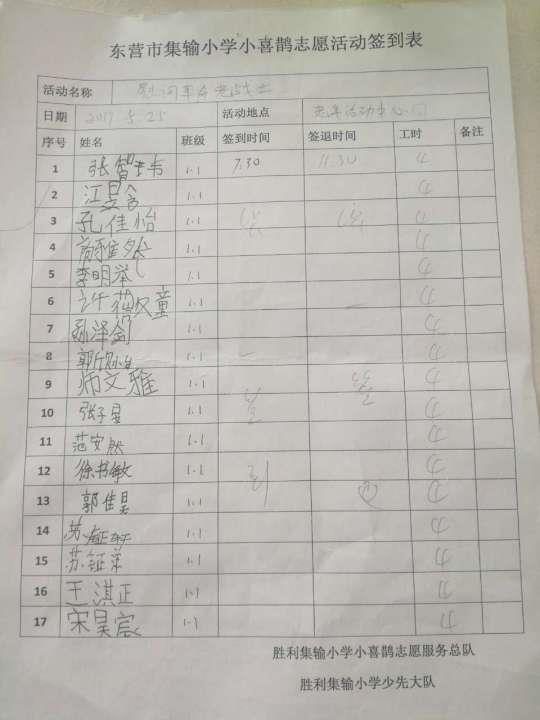 东营市集输小学小喜鹊志愿活动签到表
活动名称 慰问革命老战士
日期 2017.5.25 活动地点 老年活动中心
序号 姓名 班级 签到时间 签退时间 工时 备注
1 张智玮 1.1 7:30 11:30 4
2 江昱含 1.1 4
3 孔佳怡 1.1 4
4 1.1 4
5 李明举 1.1 4
6 许范汉童 1.1 4
7 孙泽剑 1.1 4
8 郭 1.1 4
9 师文雅 1.1 4
10 张子昱 1.1 4
11 范安然 1.1 4
12 徐书敏 1.1 4
13 郭佳昊 1.1 4
14 苏钲 1.1 4
15 苏钲 1.1 4
16 王淇正 1.1 4
17 宋昊宸 1.1 4
胜利集输小学小喜鹊志愿服务总队
胜利集输小学少先大队